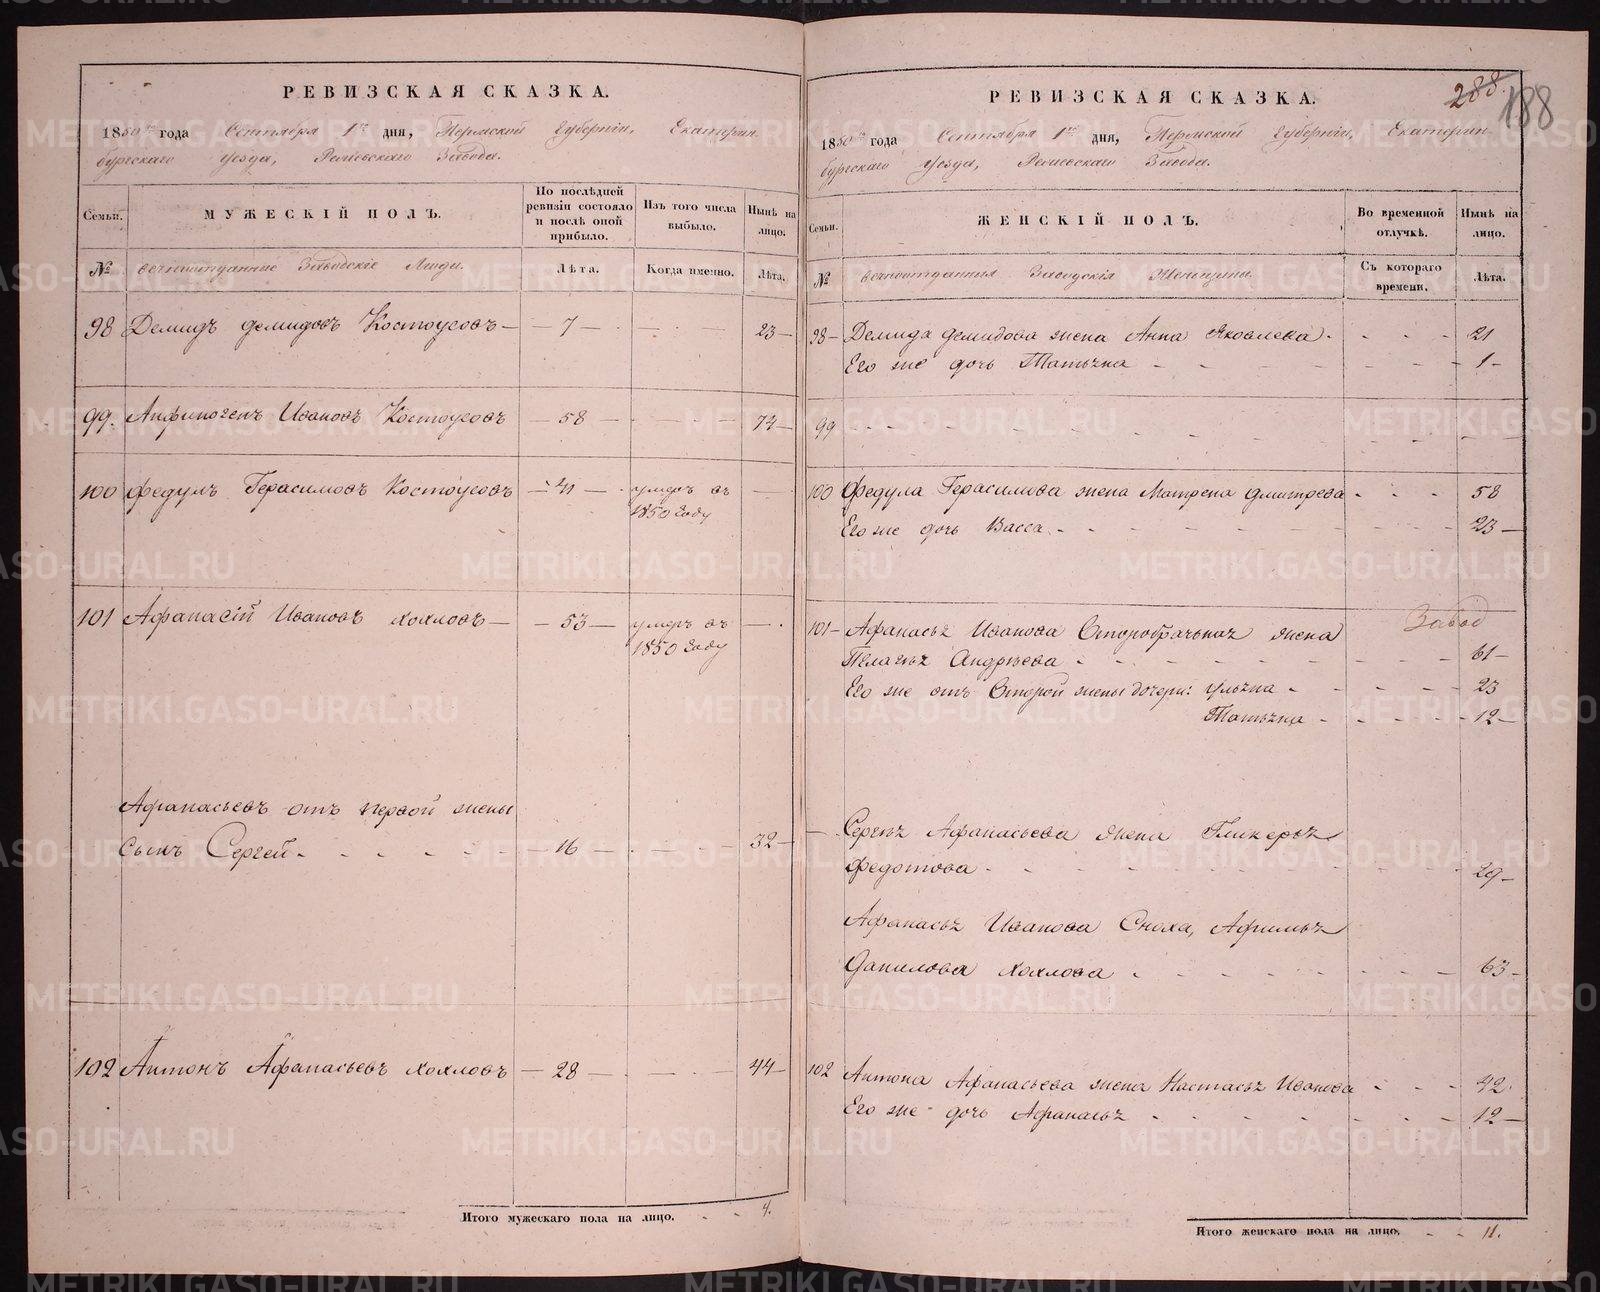 288. 188
РЕВИЗСКАЯ СКАЗКА.
1850 года Сентября 1го дня, Пермской Губерніи, Екатерин
бургскаго уезда, Завода.
Семьи.
МУЖЕСКІЙ ПОЛЪ.
По послѣдней ревизіи состояло и послѣ оной прибыло.
Изъ того числа выбыло.
Нынѣ на лицо.
№
вечноотданные Заводскіе Люди.
Лѣта.
Когда именно.
Лѣта.
98 Демидъ Демидовъ Костоусовъ — 7 — 23 —
99. Анфиногенъ Ивановъ Костоусовъ — 58 — 74 —
100 Федулъ Герасимовъ Костоусовъ — 41 — умеръ въ
1850 году
101 Афанасій Ивановъ Хохловъ — 53 — умеръ въ
1850 году
Афанасьевъ отъ первой жены
сынъ Сергей — 16 — 32 —
102 Антонъ Афанасьевъ Хохловъ — 28 — 44 —
Итого мужескаго пола на лицо. 4.
РЕВИЗСКАЯ СКАЗКА.
1850 года Сентября 1го дня, Пермской Губерніи, Екатерин
бургскаго уезда, Завода.
Семьи.
ЖЕНСКІЙ ПОЛЪ.
Во временной отлучкѣ.
Нынѣ на лицо.
№
вечноотданныя Заводскія Женщины.
Съ котораго времени.
Лѣта.
98 — Демида Демидова жена Анна Яковлева 21
Его же дочь Татьяна 1 —
99
100 Федула Герасимова жена Матрена Дмитрева 58
Его же дочь Васса 23 —
Завод
101 — Афанасья Иванова Второбрачная жена
Пелагея Андреева 61 —
Его же отъ Второй жены дочери: Ульяна 23
Татьяна 12 —
Сергея Афанасьева жена Гликерья
Федотова 29 —
Афанасья Иванова Сноха, Афимья
Данилова Хохлова 63 —
102 Антона Афанасьева жена Настасья Иванова 42.
Его же дочь Афанасья 12 —
Итого женскаго пола на лицо. 11.
METRIKI.GASO-URAL.RU